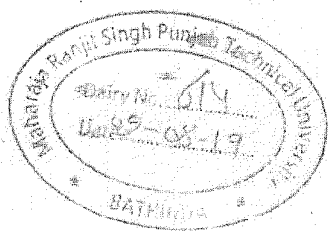 Maharaja Ranjit Singh Punjab Technical University
Dairy No. 614
Date 09-08-19
BATHINDA